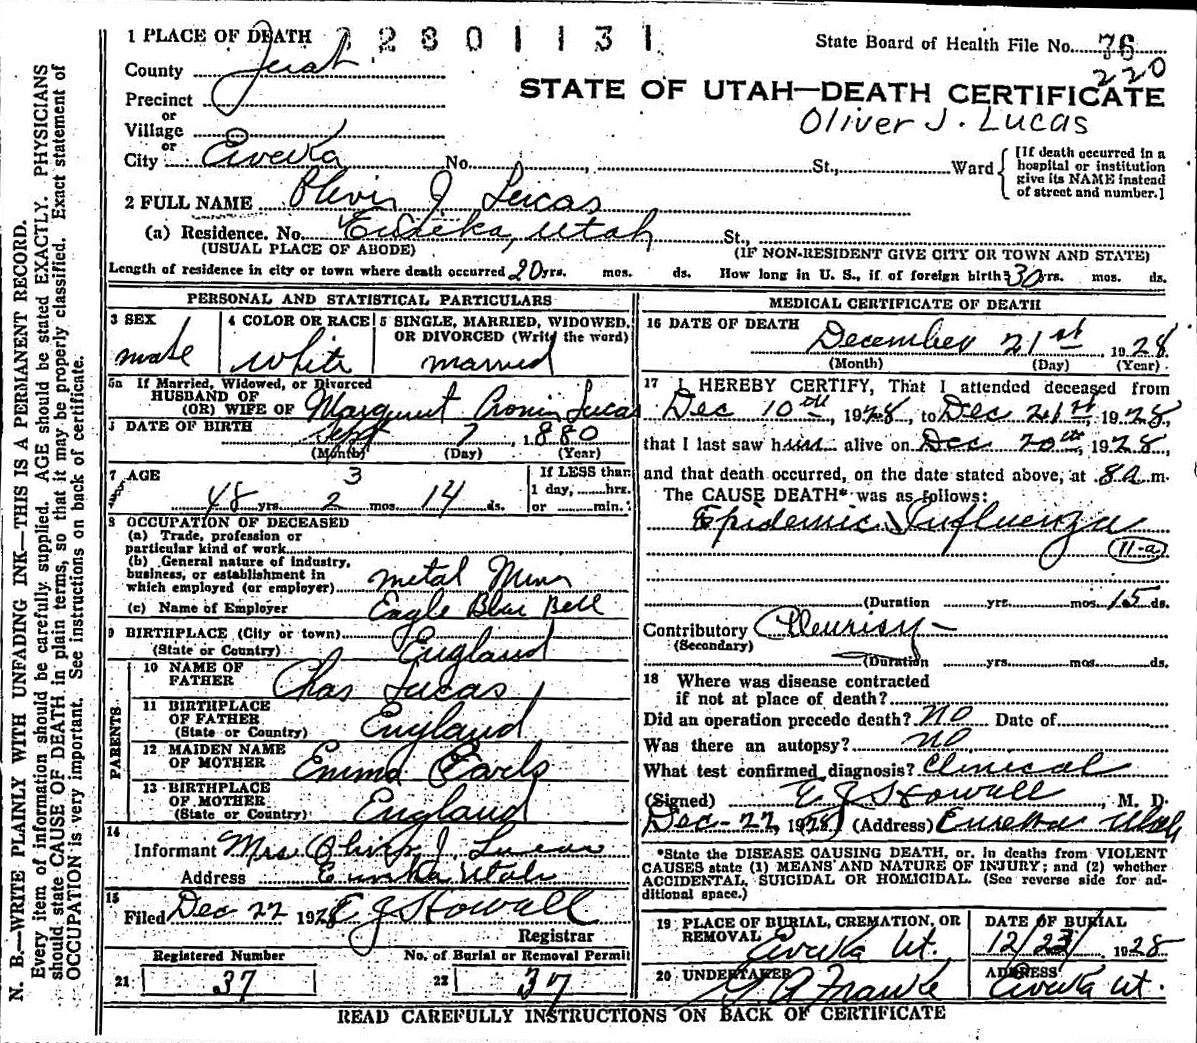 N. B.—WRITE PLAINLY WITH UNFADING INK—THIS IS A PERMANENT RECORD.
Every item of information should be carefully supplied. AGE should be stated EXACTLY. PHYSICIANS
should state CAUSE OF DEATH in plain terms, so that it may be properly classified. Exact statement of
OCCUPATION is very important. See instructions on back of certificate.
1 PLACE OF DEATH 2801131
State Board of Health File No. 76
220
County Juab
STATE OF UTAH—DEATH CERTIFICATE
Precinct
or
Oliver J. Lucas
Village
or
City Eureka No. St., Ward
[If death occurred in a
hospital or institution
give its NAME instead
of street and number.]
2 FULL NAME Oliver J Lucas
(a) Residence. No. Eureka, Utah St.,
(USUAL PLACE OF ABODE) (IF NON-RESIDENT GIVE CITY OR TOWN AND STATE)
Length of residence in city or town where death occurred 20 yrs. mos. ds. How long in U. S., if of foreign birth 30 yrs. mos. ds.
PERSONAL AND STATISTICAL PARTICULARS
3 SEX male
4 COLOR OR RACE White
5 SINGLE, MARRIED, WIDOWED,
OR DIVORCED (Write the word)
married
5a If Married, Widowed, or Divorced
HUSBAND OF
(OR) WIFE OF Margaret Cronin Lucas
DATE OF BIRTH Sept 7, 1880
(Month) (Day) (Year)
7 AGE 3
48 yrs. 2 mos. 14 ds.
If LESS than
1 day, hrs.
or min.
8 OCCUPATION OF DECEASED
(a) Trade, profession or
particular kind of work
(b) General nature of industry,
business, or establishment in
which employed (or employer) metal Mine
(c) Name of Employer Eagle Blue Bell
9 BIRTHPLACE (City or town)
(State or Country) England
PARENTS
10 NAME OF
FATHER Chas Lucas
11 BIRTHPLACE
OF FATHER
(State or Country) England
12 MAIDEN NAME
OF MOTHER Emma
13 BIRTHPLACE
OF MOTHER
(State or Country) England
14
Informant Mrs Oliver J. Lucas
Address Eureka Utah
15
Filed Dec 22 1928 E J Howall
Registrar
Registered Number No. of Burial or Removal Permit
21 37 22 37
MEDICAL CERTIFICATE OF DEATH
16 DATE OF DEATH December 21st 1928
(Month) (Day) (Year)
17 I HEREBY CERTIFY, That I attended deceased from
Dec 10th, 1928, to Dec 21st, 1928,
that I last saw him alive on Dec 20th, 1928,
and that death occurred, on the date stated above, at 8a m.
The CAUSE DEATH* was as follows:
Epidemic Influenza
11-a
(Duration yrs. mos. 15 ds.
Contributory Pleurisy —
(Secondary)
(Duration yrs. mos. ds.
18 Where was disease contracted
if not at place of death?
Did an operation precede death? NO Date of
Was there an autopsy? NO
What test confirmed diagnosis? Clinical
(Signed) E J Howall, M. D.
Dec-22, 1928 (Address) Eureka Utah
*State the DISEASE CAUSING DEATH, or, in deaths from VIOLENT
CAUSES state (1) MEANS AND NATURE OF INJURY; and (2) whether
ACCIDENTAL, SUICIDAL OR HOMICIDAL. (See reverse side for ad-
ditional space.)
19 PLACE OF BURIAL, CREMATION, OR
REMOVAL Eureka Ut.
DATE OF BURIAL
12/23/ 1928
20 UNDERTAKER
G A Franke
ADDRESS
Eureka Ut.
READ CAREFULLY INSTRUCTIONS ON BACK OF CERTIFICATE